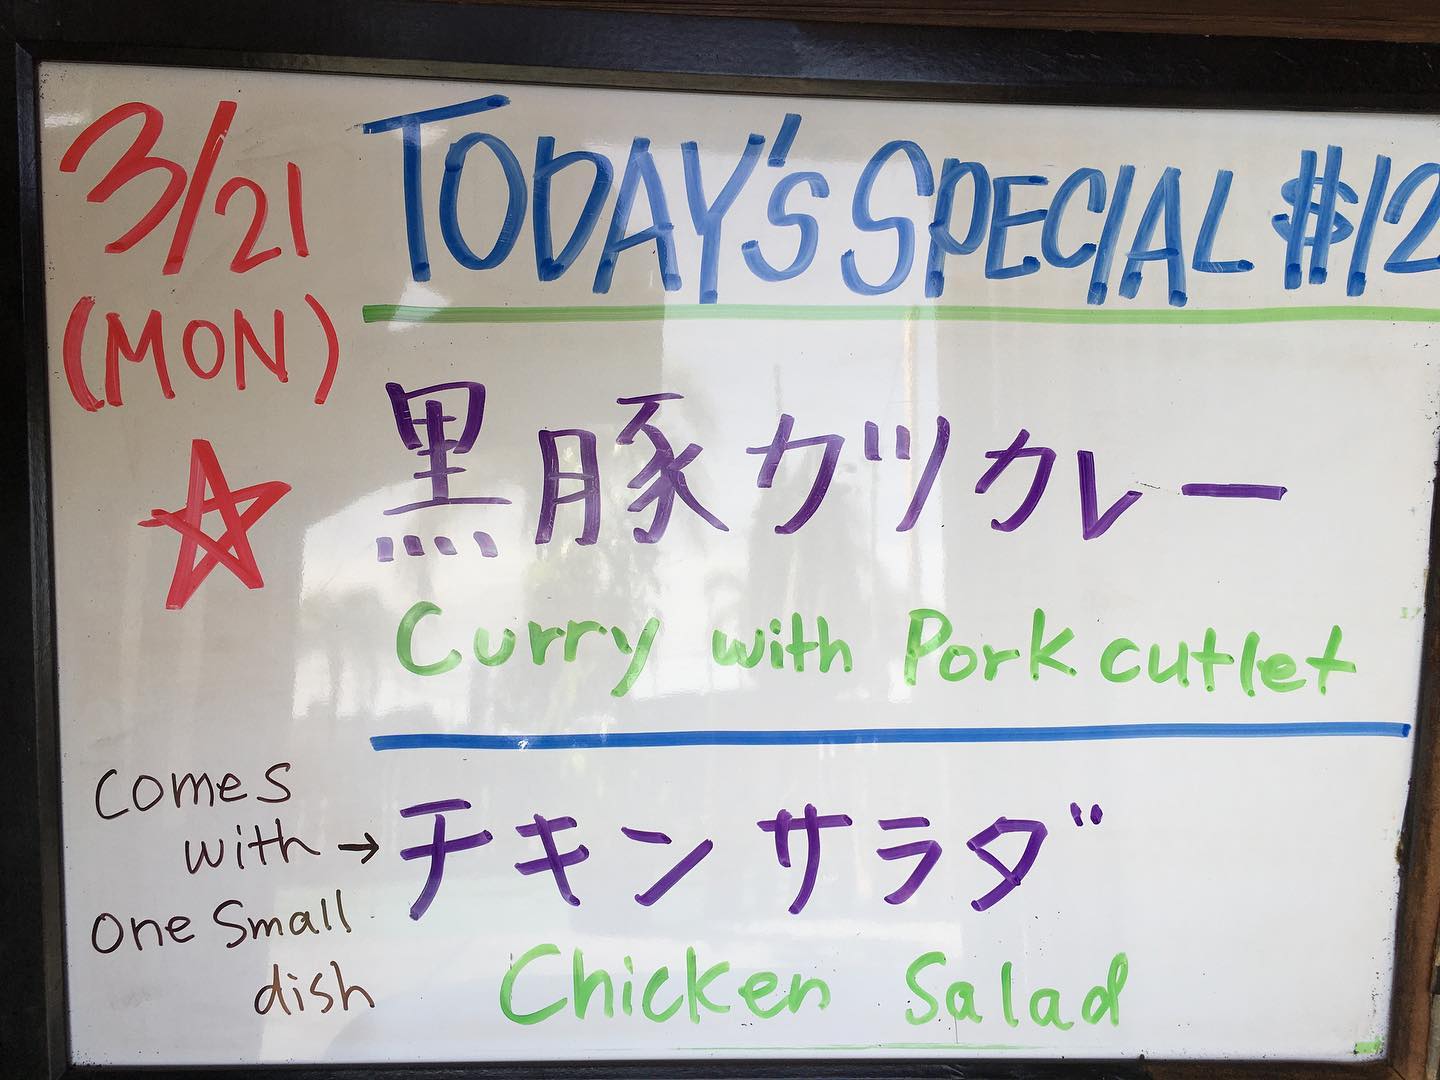 3/21
(MON)
TODAY'S SPECIAL $12
黒豚カツカレー
Curry with Pork cutlet
comes
with →
one small
dish
チキンサラダ
Chicken Salad